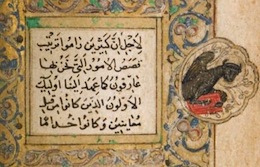 لاجل ان كثيرين راموا ترتيب
قصص الامور التي نحن بها
عارفون كما عهد الينا اوليك
الاولون الذين كانوا من قبل
معاينين وكانوا خداما